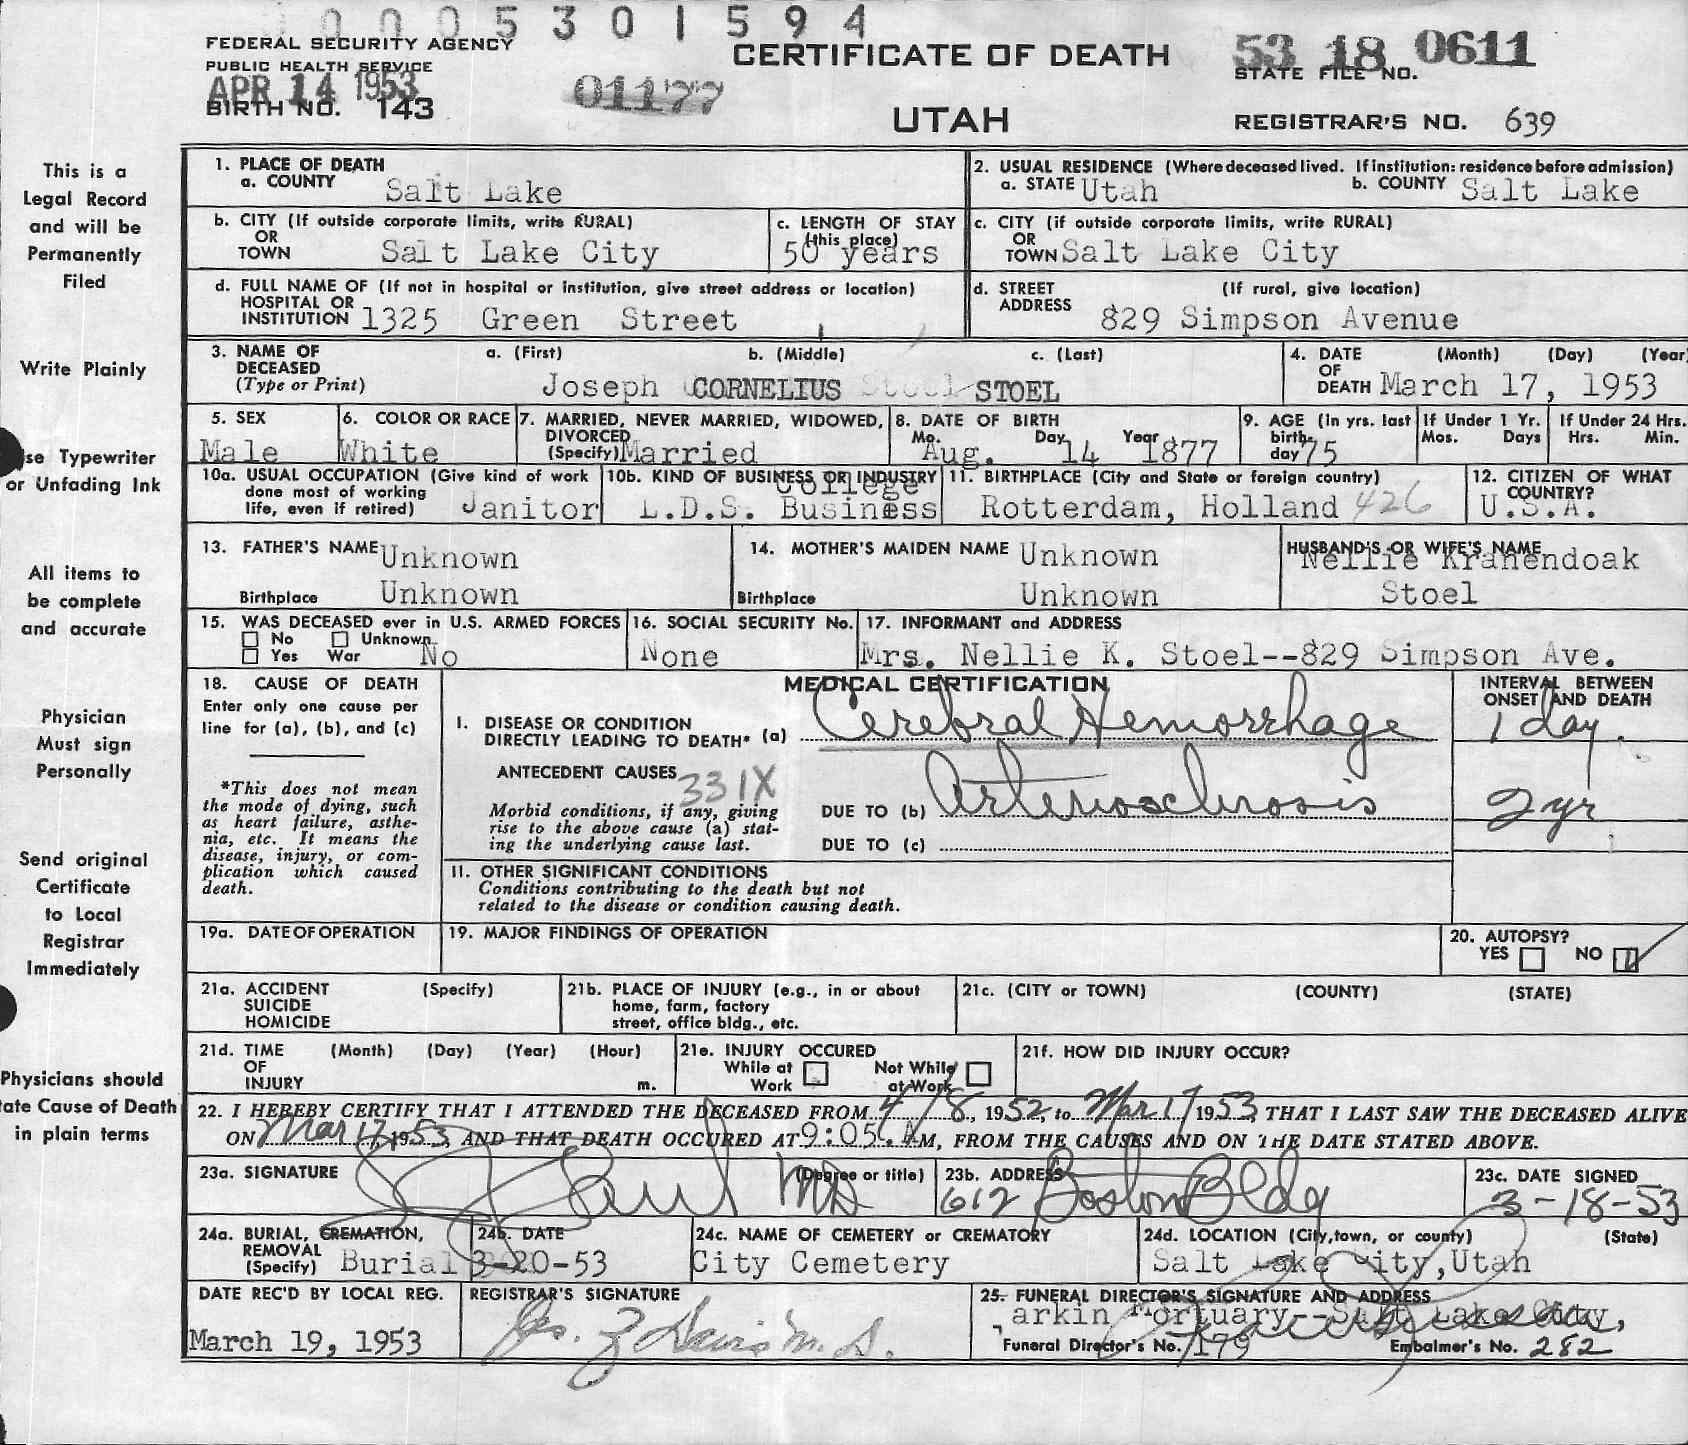 0005301594
FEDERAL SECURITY AGENCY
PUBLIC HEALTH SERVICE
APR 14 1953
BIRTH NO. 143
01177
CERTIFICATE OF DEATH
UTAH
53 18 0611
STATE FILE NO.
REGISTRAR'S NO. 639
This is a
Legal Record
and will be
Permanently
Filed
Write Plainly
se Typewriter
or Unfading Ink
All items to
be complete
and accurate
Physician
Must sign
Personally
Send original
Certificate
to Local
Registrar
Immediately
Physicians should
ate Cause of Death
in plain terms
1. PLACE OF DEATH
a. COUNTY Salt Lake
2. USUAL RESIDENCE (Where deceased lived. If institution: residence before admission)
a. STATE Utah b. COUNTY Salt Lake
b. CITY (If outside corporate limits, write RURAL)
OR
TOWN Salt Lake City
c. LENGTH OF STAY
(this place)
50 years
c. CITY (if outside corporate limits, write RURAL)
OR
TOWN Salt Lake City
d. FULL NAME OF (If not in hospital or institution, give street address or location)
HOSPITAL OR
INSTITUTION 1325 Green Street
d. STREET (If rural, give location)
ADDRESS 829 Simpson Avenue
3. NAME OF a. (First) b. (Middle) c. (Last)
DECEASED
(Type or Print) Joseph CORNELIUS Stoel STOEL
4. DATE (Month) (Day) (Year
OF
DEATH March 17, 1953
5. SEX
Male
6. COLOR OR RACE
White
7. MARRIED, NEVER MARRIED, WIDOWED,
DIVORCED
(Specify) Married
8. DATE OF BIRTH
Mo. Day Year
Aug. 14 1877
9. AGE (in yrs. last
birth-
day 75
If Under 1 Yr.
Mos. Days
If Under 24 Hrs.
Hrs. Min.
10a. USUAL OCCUPATION (Give kind of work
done most of working
life, even if retired) Janitor
10b. KIND OF BUSINESS OR INDUSTRY
College
L.D.S. Business
11. BIRTHPLACE (City and State or foreign country)
Rotterdam, Holland 426
12. CITIZEN OF WHAT
COUNTRY?
U.S.A.
13. FATHER'S NAME Unknown
Birthplace Unknown
14. MOTHER'S MAIDEN NAME Unknown
Birthplace Unknown
HUSBAND'S OR WIFE'S NAME
Nellie Kranendoak
Stoel
15. WAS DECEASED ever in U.S. ARMED FORCES
No Unknown
Yes War No
16. SOCIAL SECURITY No.
None
17. INFORMANT and ADDRESS
Mrs. Nellie K. Stoel--829 Simpson Ave.
18. CAUSE OF DEATH
Enter only one cause per
line for (a), (b), and (c)
*This does not mean
the mode of dying, such
as heart failure, asthe-
nia, etc. It means the
disease, injury, or com-
plication which caused
death.
MEDICAL CERTIFICATION
I. DISEASE OR CONDITION
DIRECTLY LEADING TO DEATH* (a) Cerebral Hemorrhage
ANTECEDENT CAUSES 331X
Morbid conditions, if any, giving
rise to the above cause (a) stat-
ing the underlying cause last.
DUE TO (b) Arteriosclerosis
DUE TO (c)
INTERVAL BETWEEN
ONSET AND DEATH
1 day.
2 yr
11. OTHER SIGNIFICANT CONDITIONS
Conditions contributing to the death but not
related to the disease or condition causing death.
19a. DATE OF OPERATION
19. MAJOR FINDINGS OF OPERATION
20. AUTOPSY?
YES NO
21a. ACCIDENT (Specify)
SUICIDE
HOMICIDE
21b. PLACE OF INJURY (e.g., in or about
home, farm, factory
street, office bldg., etc.
21c. (CITY or TOWN) (COUNTY) (STATE)
21d. TIME (Month) (Day) (Year) (Hour)
OF
INJURY m.
21e. INJURY OCCURED
While at Not While
Work at Work
21f. HOW DID INJURY OCCUR?
22. I HEREBY CERTIFY THAT I ATTENDED THE DECEASED FROM 4/18, 1952, to Mar 17 1953, THAT I LAST SAW THE DECEASED ALIVE
ON Mar 17, 1953, AND THAT DEATH OCCURED AT 9:05 AM, FROM THE CAUSES AND ON THE DATE STATED ABOVE.
23a. SIGNATURE (Degree or title)
MD
23b. ADDRESS
612 Boston Bldg
23c. DATE SIGNED
3-18-53
24a. BURIAL, CREMATION,
REMOVAL
(Specify) Burial
24b. DATE
3-20-53
24c. NAME OF CEMETERY or CREMATORY
City Cemetery
24d. LOCATION (City, town, or county) (State)
Salt Lake City, Utah
DATE REC'D BY LOCAL REG.
March 19, 1953
REGISTRAR'S SIGNATURE
Jas. Z Davis M.D.
25. FUNERAL DIRECTOR'S SIGNATURE AND ADDRESS
arkin Mortuary--Salt Lake City,
Funeral Director's No. 179 Embalmer's No. 282